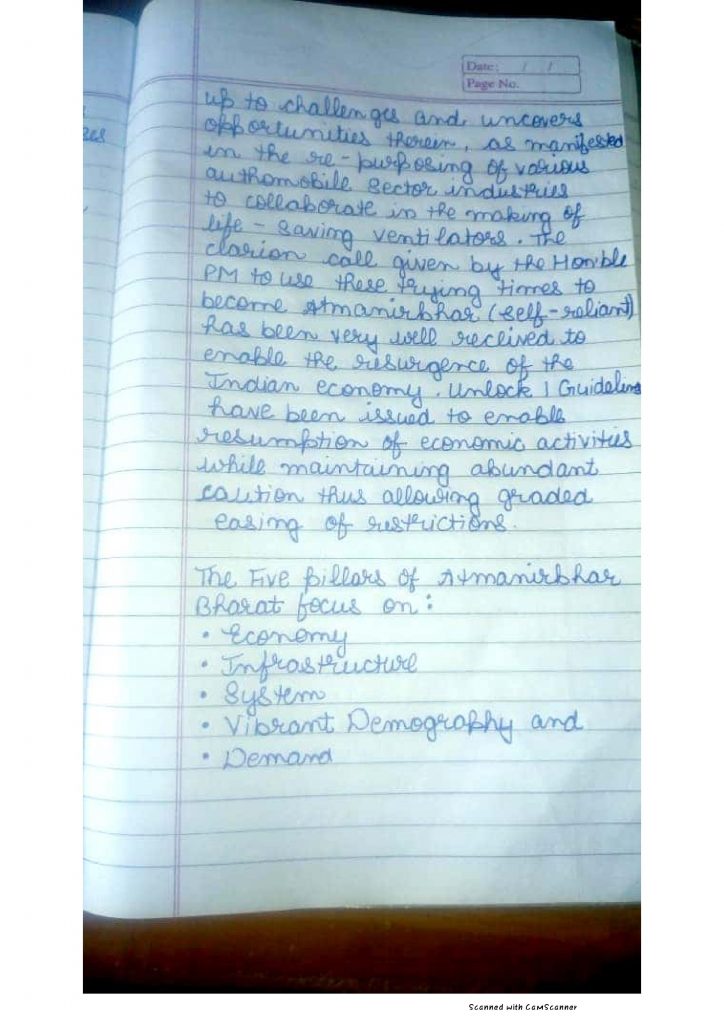 Date: / /
Page No.
up to challenges and uncovers
opportunities therein, as manifested
in the re-purposing of various
authomobile sector industries
to collaborate in the making of
life-saving ventilators. The
clarion call given by the Hon'ble
PM to use these trying times to
become Atmanirbhar (self-reliant)
has been very well recived to
enable the resurgence of the
Indian economy. Unlock 1 Guidelines
have been issued to enable
resumption of economic activities
while maintaining abundant
caution thus allowing graded
easing of restrictions.
The Five pillars of Atmanirbhar
Bharat focus on:
• Economy
• Infrastructure
• System
• Vibrant Demography and
• Demand
Scanned with CamScanner